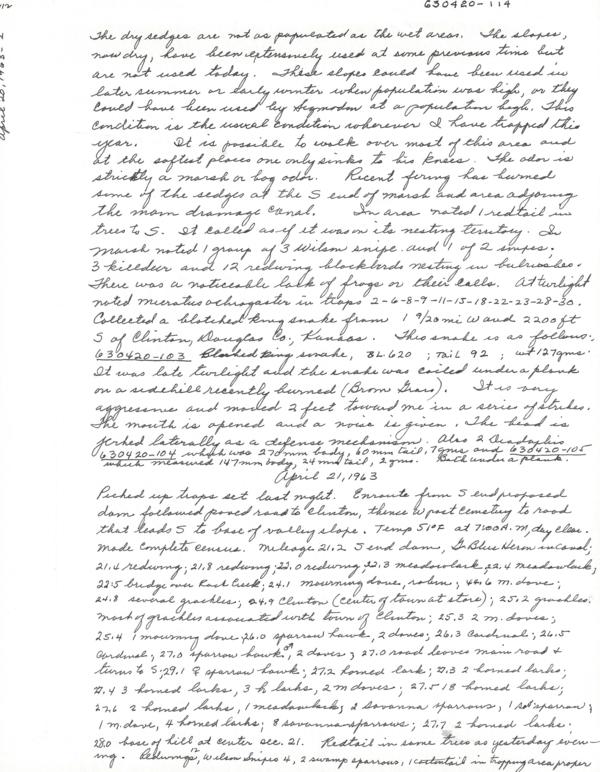 112
630420-114
April 20, 1963-2
The dry sedges are not as populated as the wet areas. The slopes,
now dry, have been extensively used at some previous time but
are not used today. These slopes could have been used in
later summer or early winter when population was high, or they
could have been used by Sigmodon at a population high. This
condition is the usual condition wherever I have trapped this
year. It is possible to walk over most of this area and
at the softest places one only sinks to his knees. The odor is
strictly a marsh or bog odor. Recent firing has burned
some of the sedges at the S end of marsh and area adjoining
the main drainage canal. In area noted 1 redtail in
trees to S. It called as if it was on its nesting territory. In
marsh noted 1 group of 3 Wilson snipe and 1 of 2 snipes.
3 killdeer and 12 redwing blackbirds nesting in bulrushes.
There was a noticeable lack of frogs or their calls. At twilight
noted microtus ochrogaster in traps 2-6-8-9-11-15-18-22-23-28-30.
Collected a blotched king snake from 1 9/20 mi W and 2200 ft
S of Clinton, Douglas Co., Kansas. This snake is as follows:
630420-103 Blotched King snake, BL 620; tail 92; wt 127 gms.
It was late twilight and the snake was coiled under a plank
on a sidehill recently burned (Brom Grass). It is very
aggressive and moved 2 feet toward me in a series of strikes.
The mouth is opened and a noise is given. The head is
jerked laterally as a defense mechanism. Also 2 Diadophis
630420-104 which was 270 mm body, 60 mm tail, 7 gms and 630420-105
which measured 147 mm body, 24 mm tail, 2 gms. Both under a plank.
April 21, 1963
Picked up traps set last night. Enroute from S end proposed
dam followed paved road to Clinton, thence W past cemetery to road
that leads S to base of valley slope. Temp 51°F at 7:00 A.M, day clear.
Made complete census. Mileage 21.2 S end dam, Gr Blue Heron in canal;
21.4 redwing; 21.8 redwing; 22.0 redwing; 22.3 meadowlark; 22.4 meadowlark;
22.5 bridge over Rock Creek; 24.1 mourning dove, robin; 24.6 m. dove;
24.8 several grackles; 24.9 Clinton (center of town at store); 25.2 grackles.
most of grackles associated with town of Clinton; 25.3 2 m. doves;
25.4 1 mourning dove; 26.0 sparrow hawk, 2 doves; 26.3 Cardinal; 26.5
Cardinal; 27.0 sparrow hawk ♂, 2 doves; 27.0 road leaves main road &
turns to S; 27.1 ♀ sparrow hawk; 27.2 horned lark; 27.3 2 horned larks;
27.4 3 horned larks, 3 h larks, 2 m doves; 27.5 18 horned larks;
27.6 2 horned larks, 1 meadowlark, 2 savanna sparrows, 1 sparrow;
1 m. dove, 4 horned larks; 8 savanna sparrows; 27.7 2 horned larks;
28.0 base of hill at center sec. 21. Redtail in same trees as yesterday even-
ing. Redwings, Wilson Snipes 4, 2 swamp sparrows, 1 cottontail in trapping area proper